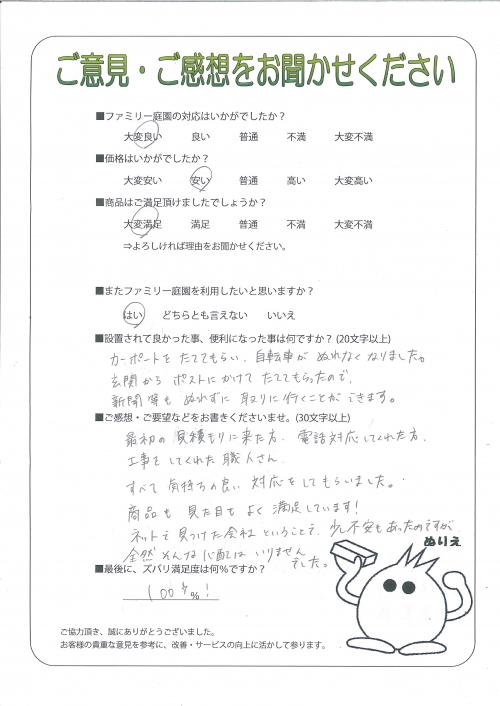 ご意見・ご感想をお聞かせください
■ファミリー庭園の対応はいかがでしたか？
大変良い 良い 普通 不満 大変不満
■価格はいかがでしたか？
大変安い 安い 普通 高い 大変高い
■商品はご満足頂けましたでしょうか？
大変満足 満足 普通 不満 大変不満
⇒よろしければ理由をお聞かせください。
■またファミリー庭園を利用したいと思いますか？
はい どちらとも言えない いいえ
■設置されて良かった事、便利になった事は何ですか？(20文字以上)
カーポートをたててもらい、自転車がぬれなくなりました。
玄関からポストにかけてたててもらったので、
新聞等もぬれずに取りに行くことができます。
■ご感想・ご要望などをお書きくださいませ。(30文字以上)
最初の見積もりに来た方、電話対応してくれた方、
工事をしてくれた職人さん、
すべて気持ちの良い対応をしてもらいました。
商品も見た目もよく満足しています！
ネットで見つけた会社ということで、少し不安もあったのですが
全然そんな心配はいりませんでした。
ぬりえ
■最後に、ズバリ満足度は何%ですか？
100%%！
ご協力頂き、誠にありがとうございました。
お客様の貴重な意見を参考に、改善・サービスの向上に活かして参ります。